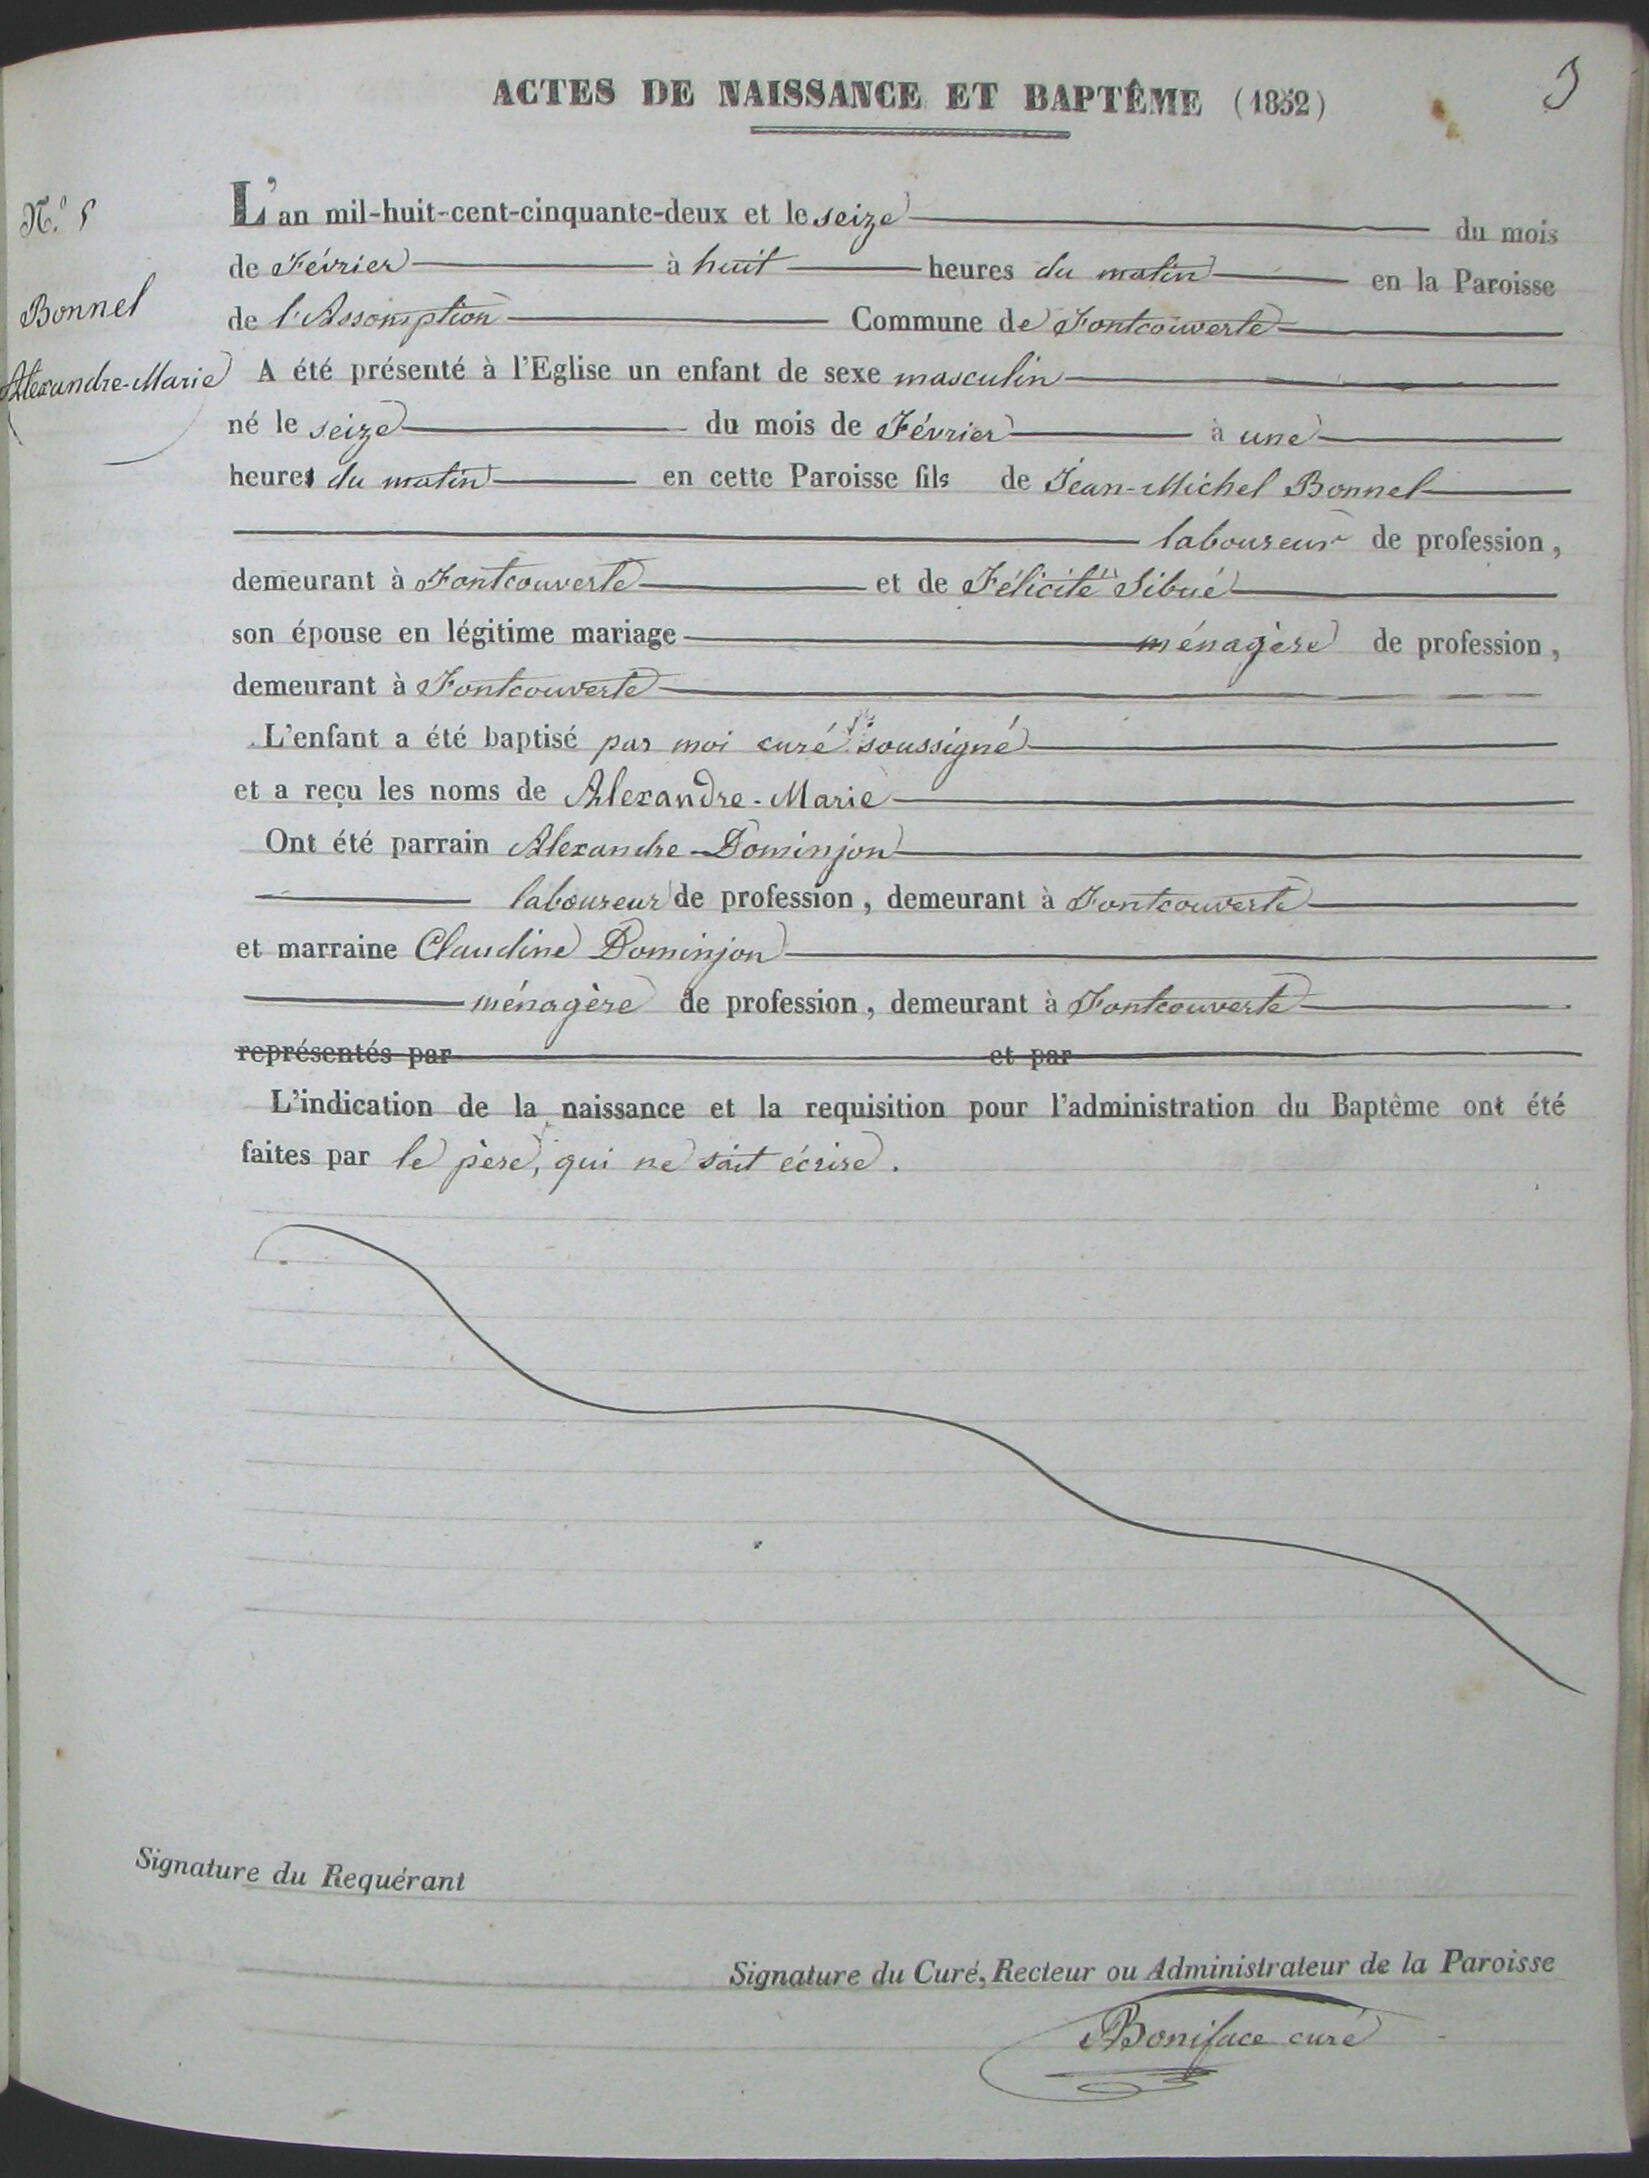 ACTES DE NAISSANCE ET BAPTÊME (1852)
3
N.º 5
Bonnel
Alexandre-Marie
L'an mil-huit-cent-cinquante-deux et le seize du mois
de Février à huit heures du matin en la Paroisse
de l'Assomption Commune de Fontcouverte
A été présenté à l'Eglise un enfant de sexe masculin
né le seize du mois de Février à une
heures du matin en cette Paroisse fils de Jean-Michel Bonnel
laboureur de profession,
demeurant à Fontcouverte et de Félicité Sibué
son épouse en légitime mariage ménagère de profession,
demeurant à Fontcouverte
L'enfant a été baptisé par moi curé soussigné
et a reçu les noms de Alexandre-Marie
Ont été parrain Alexandre Dominjon
laboureur de profession, demeurant à Fontcouverte
et marraine Claudine Dominjon
ménagère de profession, demeurant à Fontcouverte
représentés par et par
L'indication de la naissance et la requisition pour l'administration du Baptême ont été
faites par le père, qui ne sait écrire.
Signature du Requérant
Signature du Curé, Recteur ou Administrateur de la Paroisse
Boniface curé